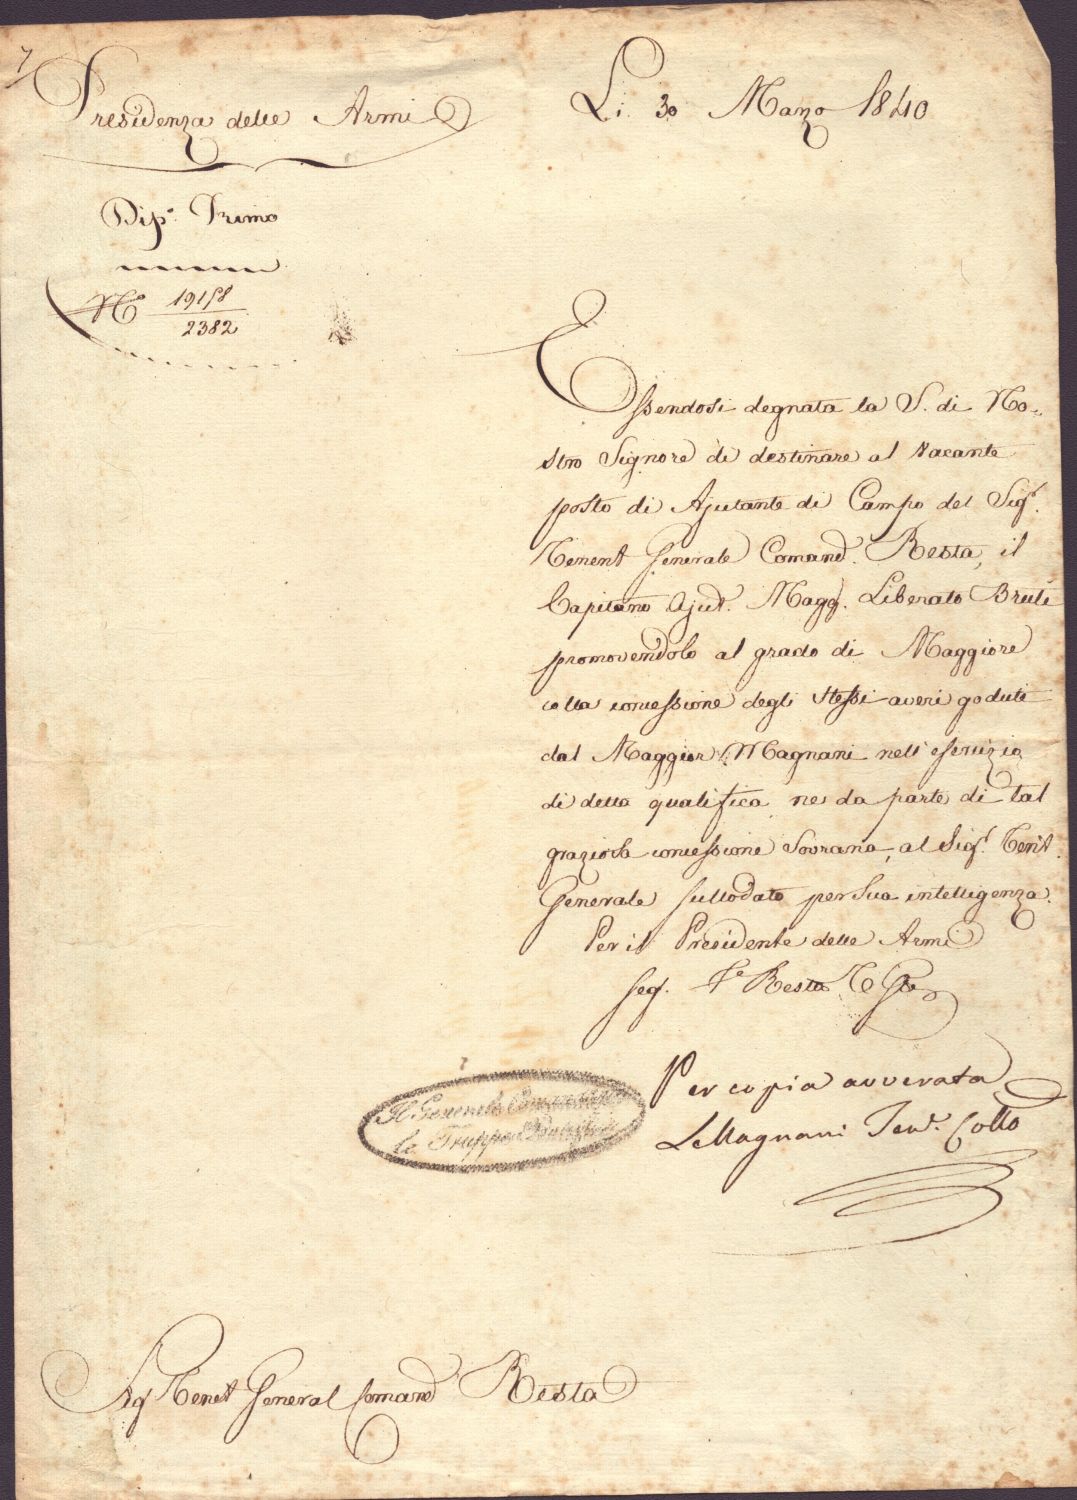 7
Presidenza delle Armi
Li 30 Marzo 1840
Dip.º Primo
Nº 19158
2382
Essendosi degnata la S. di No=
stro Signore di destinare al vacante
posto di Ajutante di Campo del Sigʳ.
Tenent Generale Comandᵉ. Resta, il
Capitano Ajut. Magg. Liberato Bruti
promovendolo al grado di Maggiore
colla concessione degli stessi averi goduti
dal Maggior Magnani nell'esercizio
di detta qualifica, ne da parte di tal
graziosa concessione Sovrana, al Sigʳ. Tent.
Generale sullodato per sua intelligenza.
Per il Presidente delle Armi
seg. Resta
Per copia avverata
LeMagnani Tenᵉ. Collo
Il Generale Comandante
le Truppe Pontificie
Sig Tenet General Comand Resta